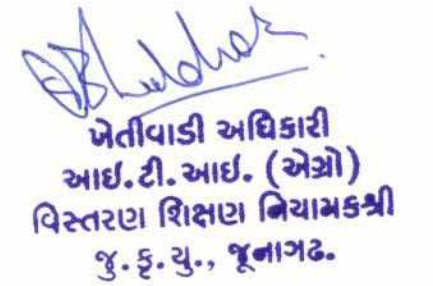 ખેતીવાડી અધિકારી
આઈ.ટી.આઈ. (એગ્રો)
વિસ્તરણ શિક્ષણ નિયામકશ્રી
જુ.કૃ.યુ., જૂનાગઢ.